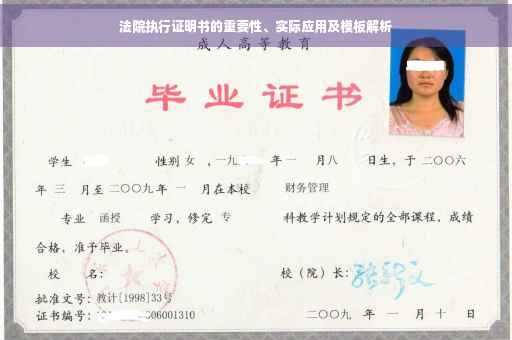 法院执行证明书的重要性、实际应用及模板解析
成人高等教育
毕业证书
学生 性别 女 ,一九 年一 月八 日生，于二〇〇六
年 三 月至二〇〇九年 一 月在本校 财务管理
专业 函授 学习，修完 专 科教学计划规定的全部课程，成绩
合格，准予毕业。
校 名： 校（院）长：
批准文号：教计[1998]33号
证书编号： 006001310 二〇〇九 年 一 月 十 日